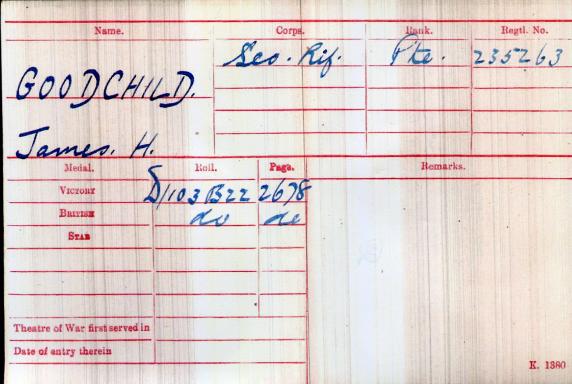 Name. Corps. Rank. Regtl. No.
GOODCHILD. Sco. Rif. Pte. 235263
James. H.
Medal. Roll. Page. Remarks.
VICTORY D/103 B22 2678
BRITISH do do
STAR
Theatre of War first served in
Date of entry therein
K. 1380